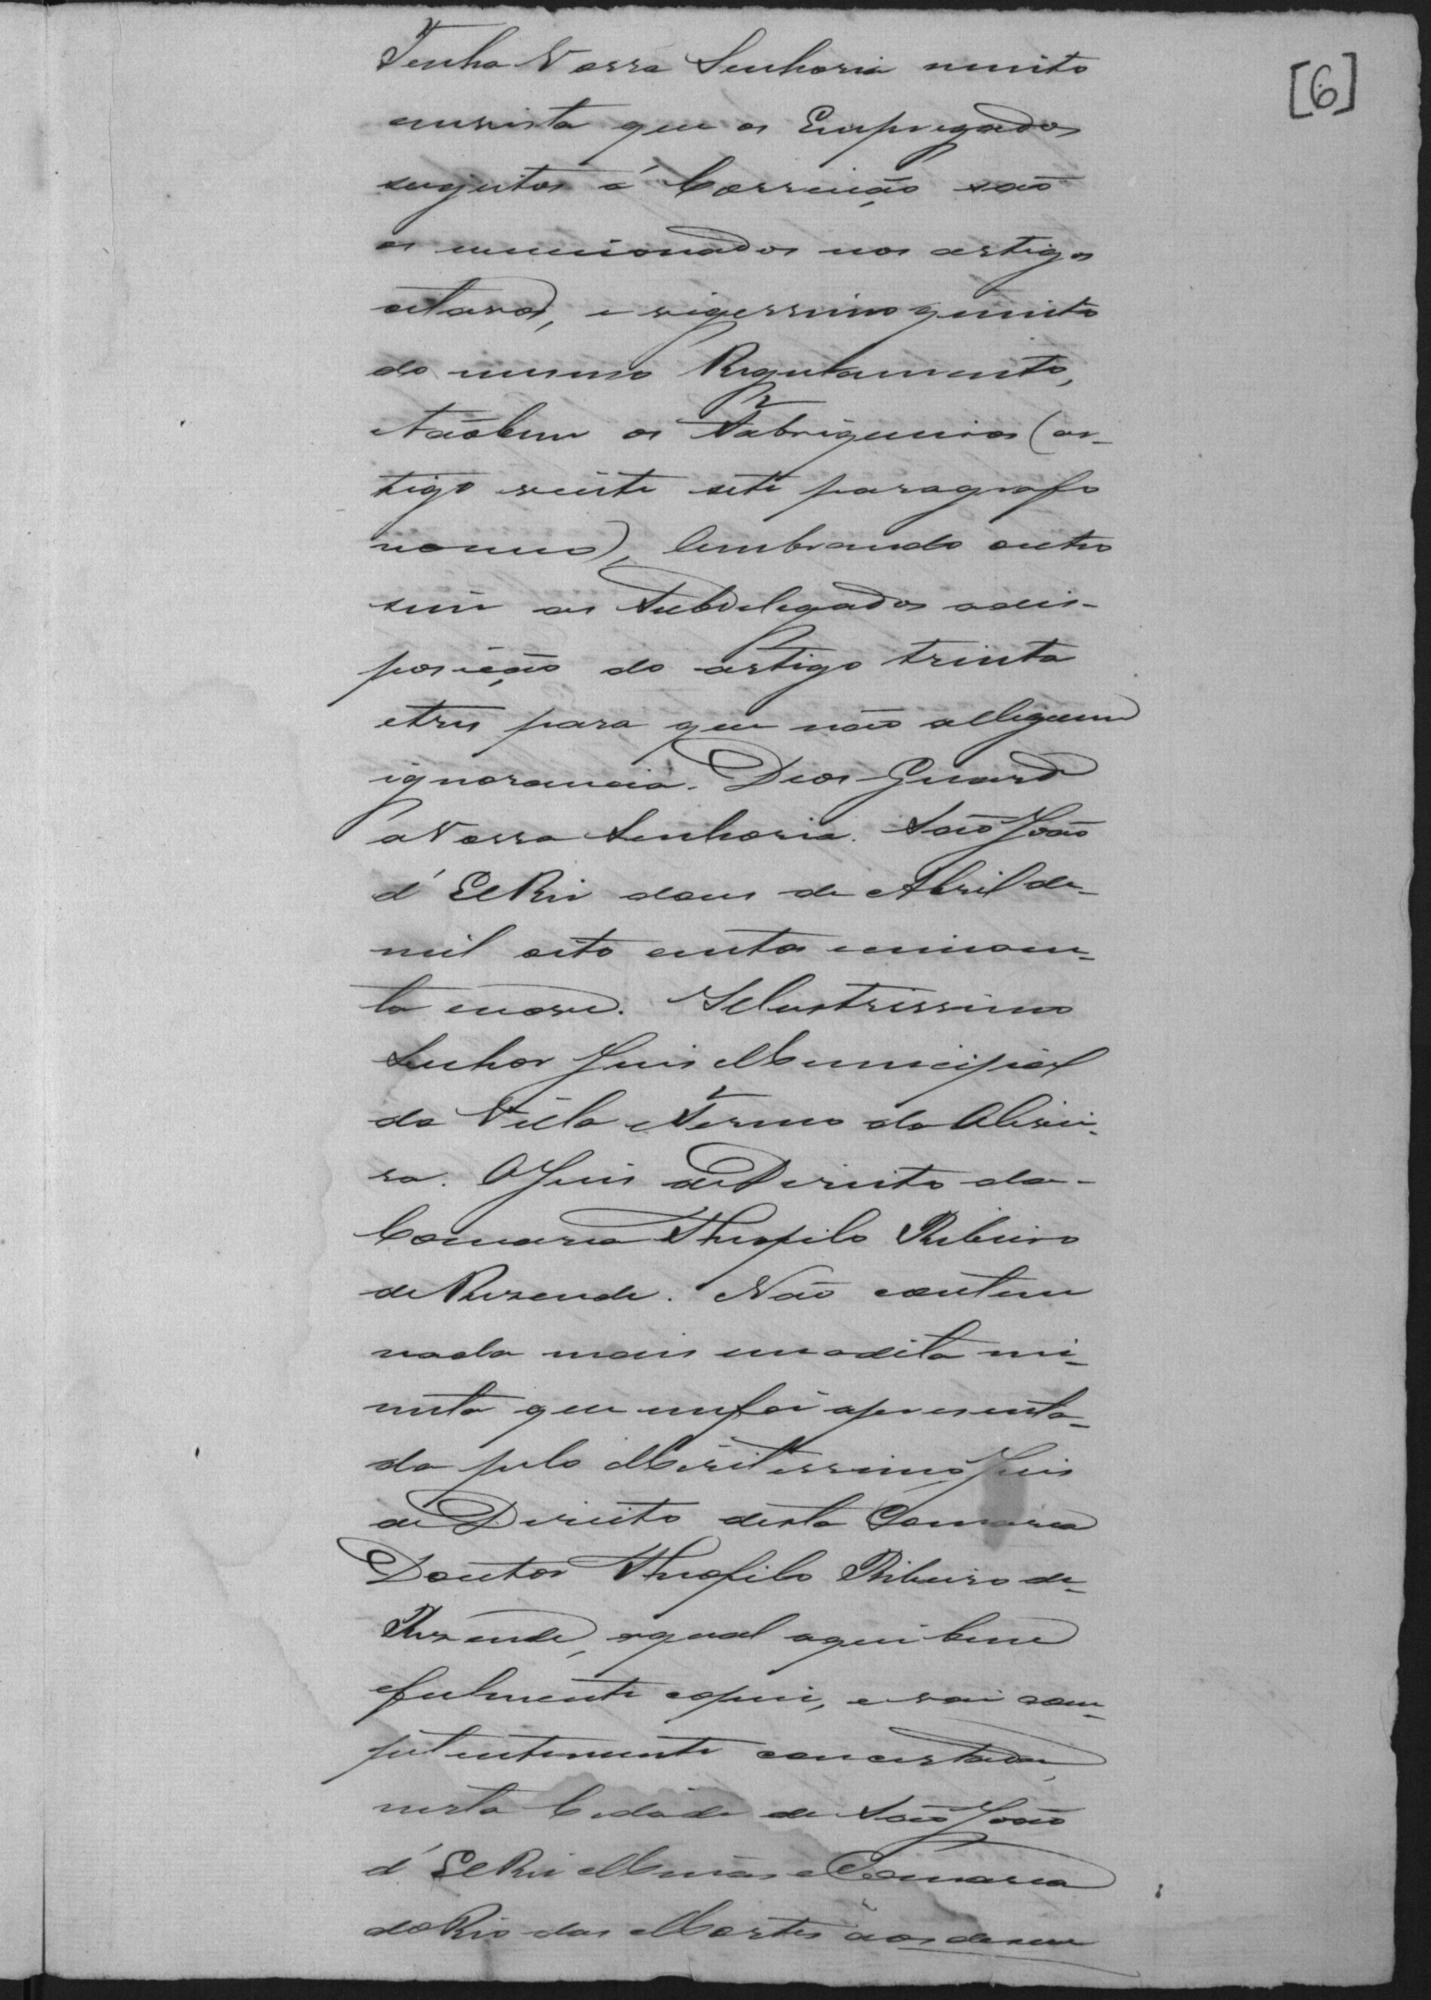 [6]
Tenha Vossa Senhoria muito
emvista que os Empregados
sugeitos á Correição são
os mencionados nos artigos
oitavo, e vigessimo quinto
do mesmo Regulamento,
etãobem os Fabriqueiros (ar-
tigo vinte sete paragrafo
nonno), lembrando outro
sim aos Subdelegados adis-
posição do artigo trinta
etres para que não alleguem
ignorancia. Deos Guarde
a Vossa Senhoria. São João
d' El Rei dous de Abril de
mil oito centos cincoen-
ta enove. Illustrissimo
Senhor Juis Municipal
da Villa e Termo da Olivei-
ra. O Juis de Direito da
Comarca Theofilo Ribeiro
de Resende. Não contem
nada mais em adita mi-
nuta que mefoi apresenta-
da pelo Meritissimo Juis
de Direito desta Comarca
Doutor Theofilo Ribeiro de
Resende, aqual aqui bem
efielmente copiei, e vai com-
petentemente concertada,
nesta Cidade de São João
d' El Rei Minas e Comarca
do Rio das Mortes aos